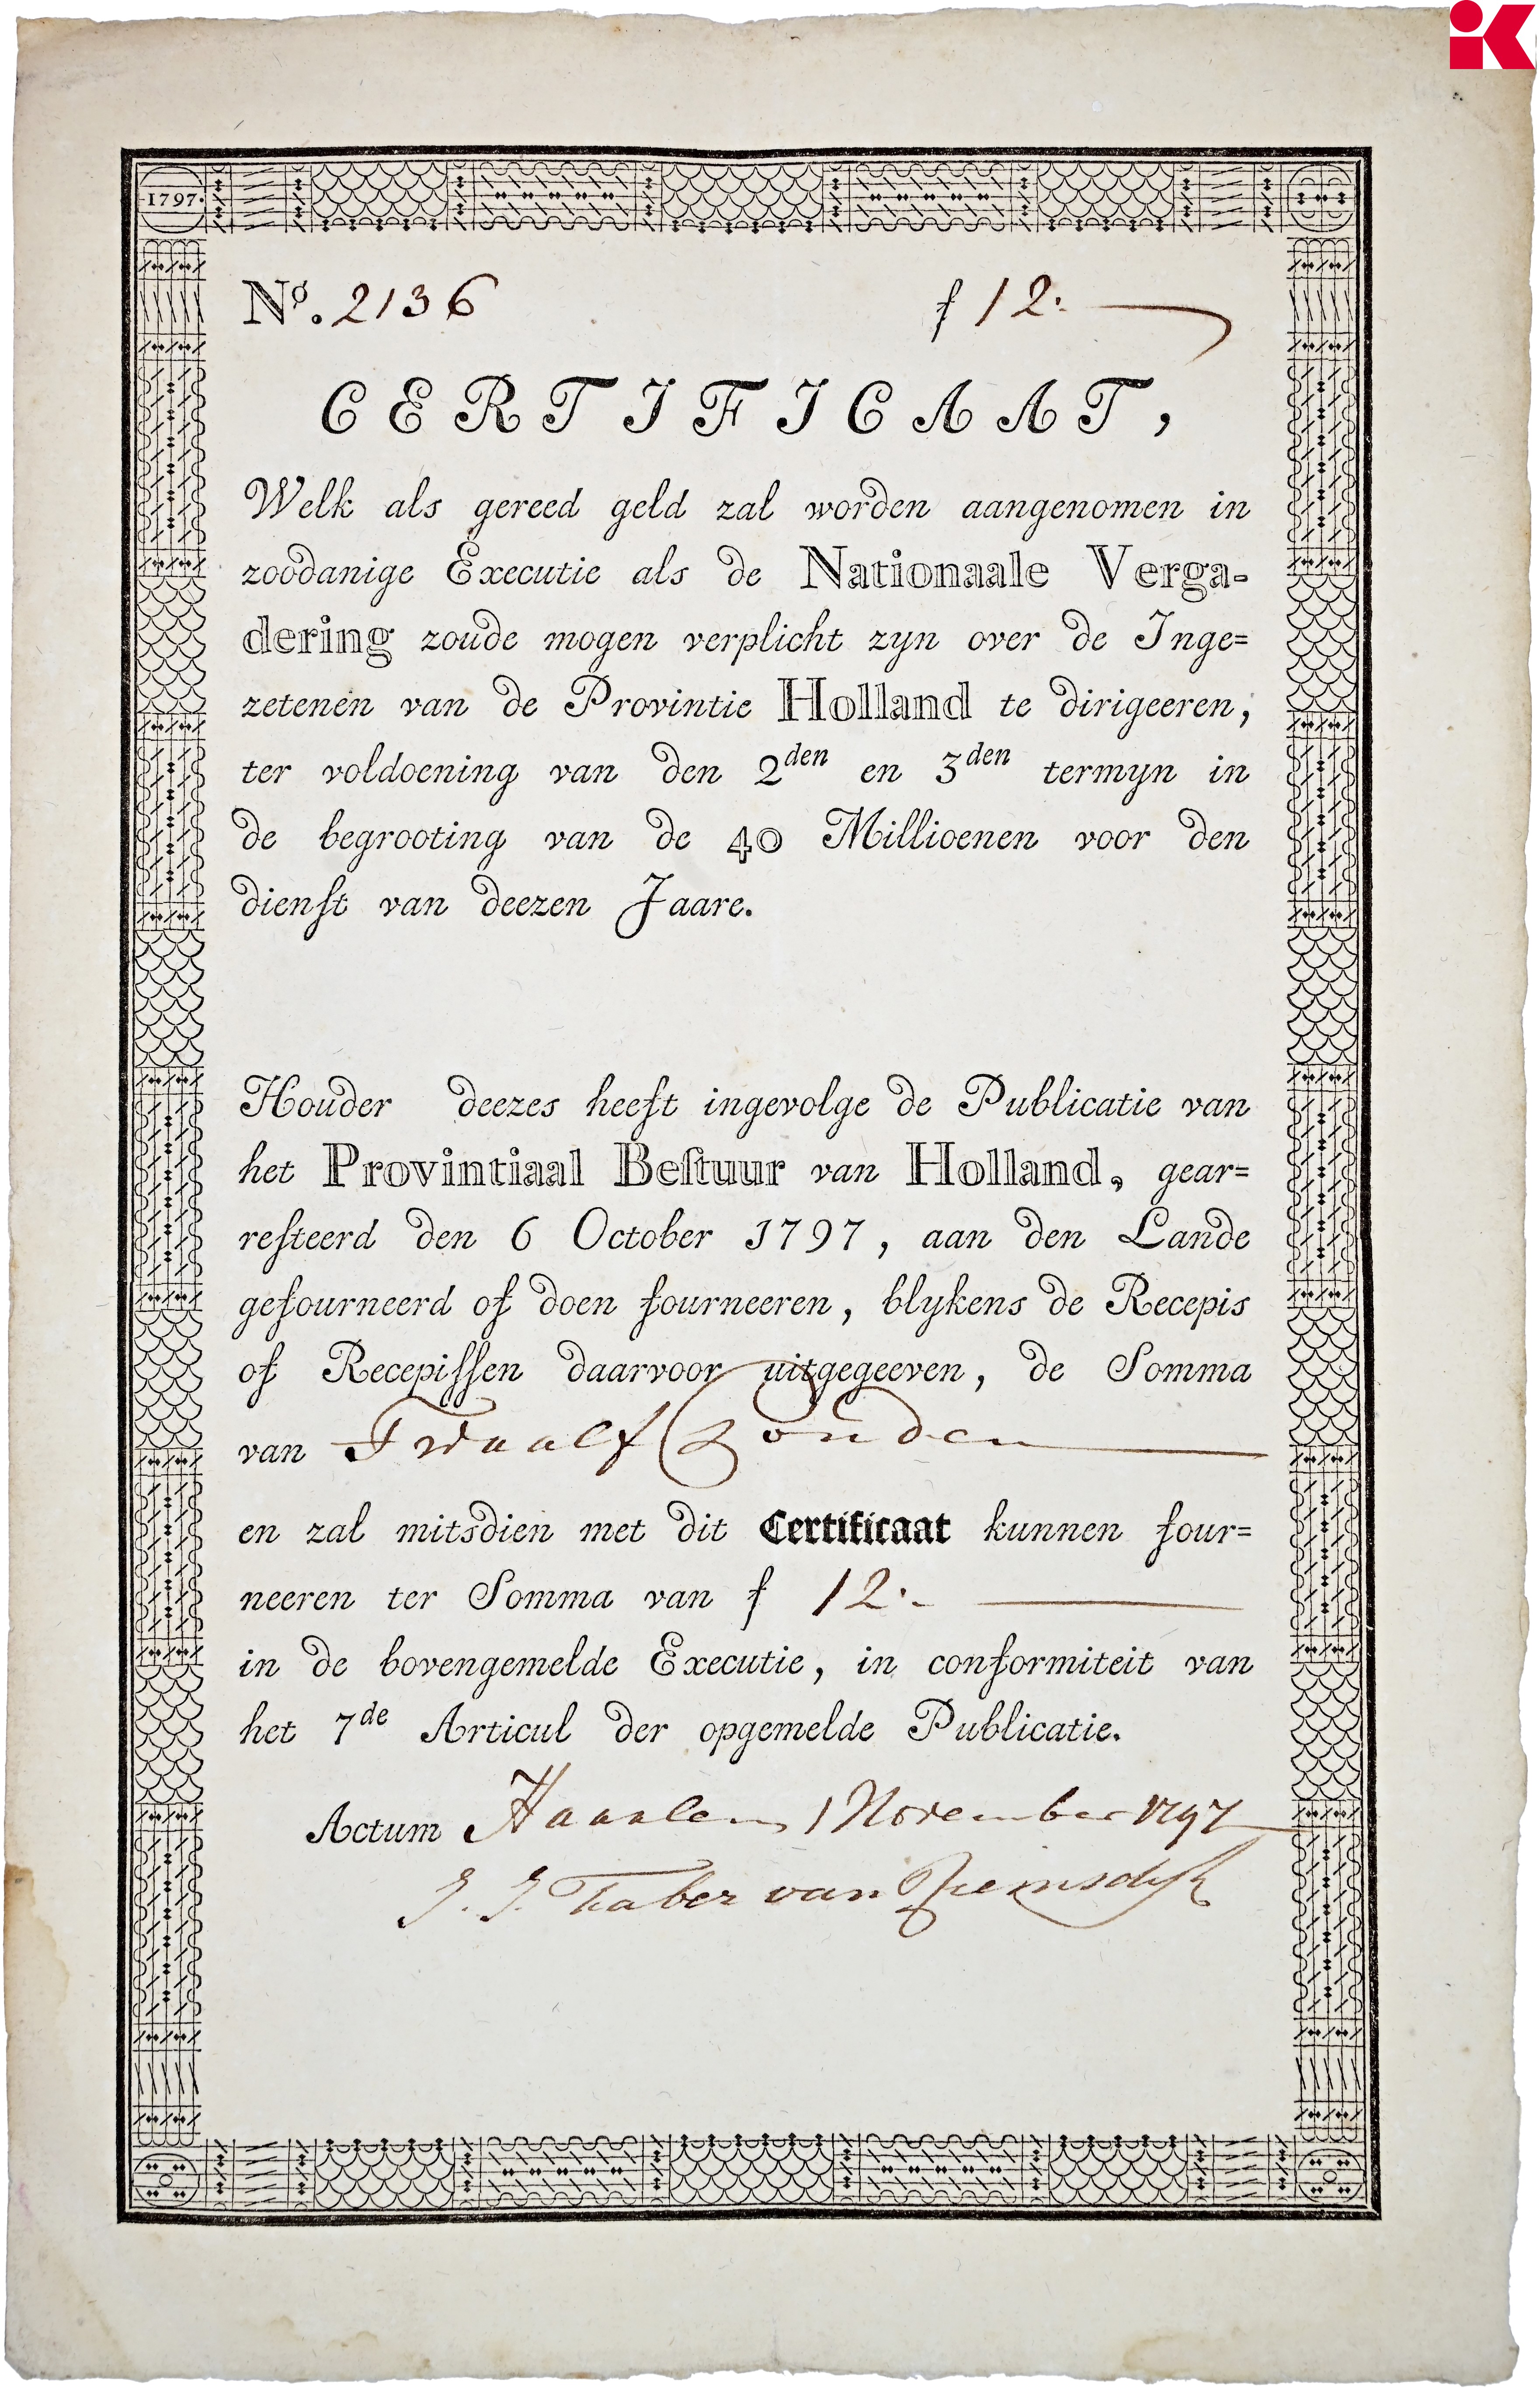 1797.
No. 2136 f 12:
CERTIFICAAT,
Welk als gereed geld zal worden aangenomen in
zoodanige Executie als de Nationaale Verga-
dering zoude mogen verplicht zyn over de Inge=
zetenen van de Provintie Holland te dirigeeren,
ter voldoening van den 2den en 3den termyn in
de begrooting van de 40 Millioenen voor den
dienſt van deezen Jaare.
Houder deezes heeft ingevolge de Publicatie van
het Provintiaal Beſtuur van Holland, gear=
reſteerd den 6 October 1797, aan den Lande
gefourneerd of doen fourneeren, blykens de Recepis
of Recepiſſen daarvoor uitgegeeven, de Somma
van Twaalf Gouden
en zal mitsdien met dit Certificaat kunnen four=
neeren ter Somma van f 12.-
in de bovengemelde Executie, in conformiteit van
het 7de Articul der opgemelde Publicatie.
Actum Haarlem 1 November 1797
J. J. Faber van Riemsdyk